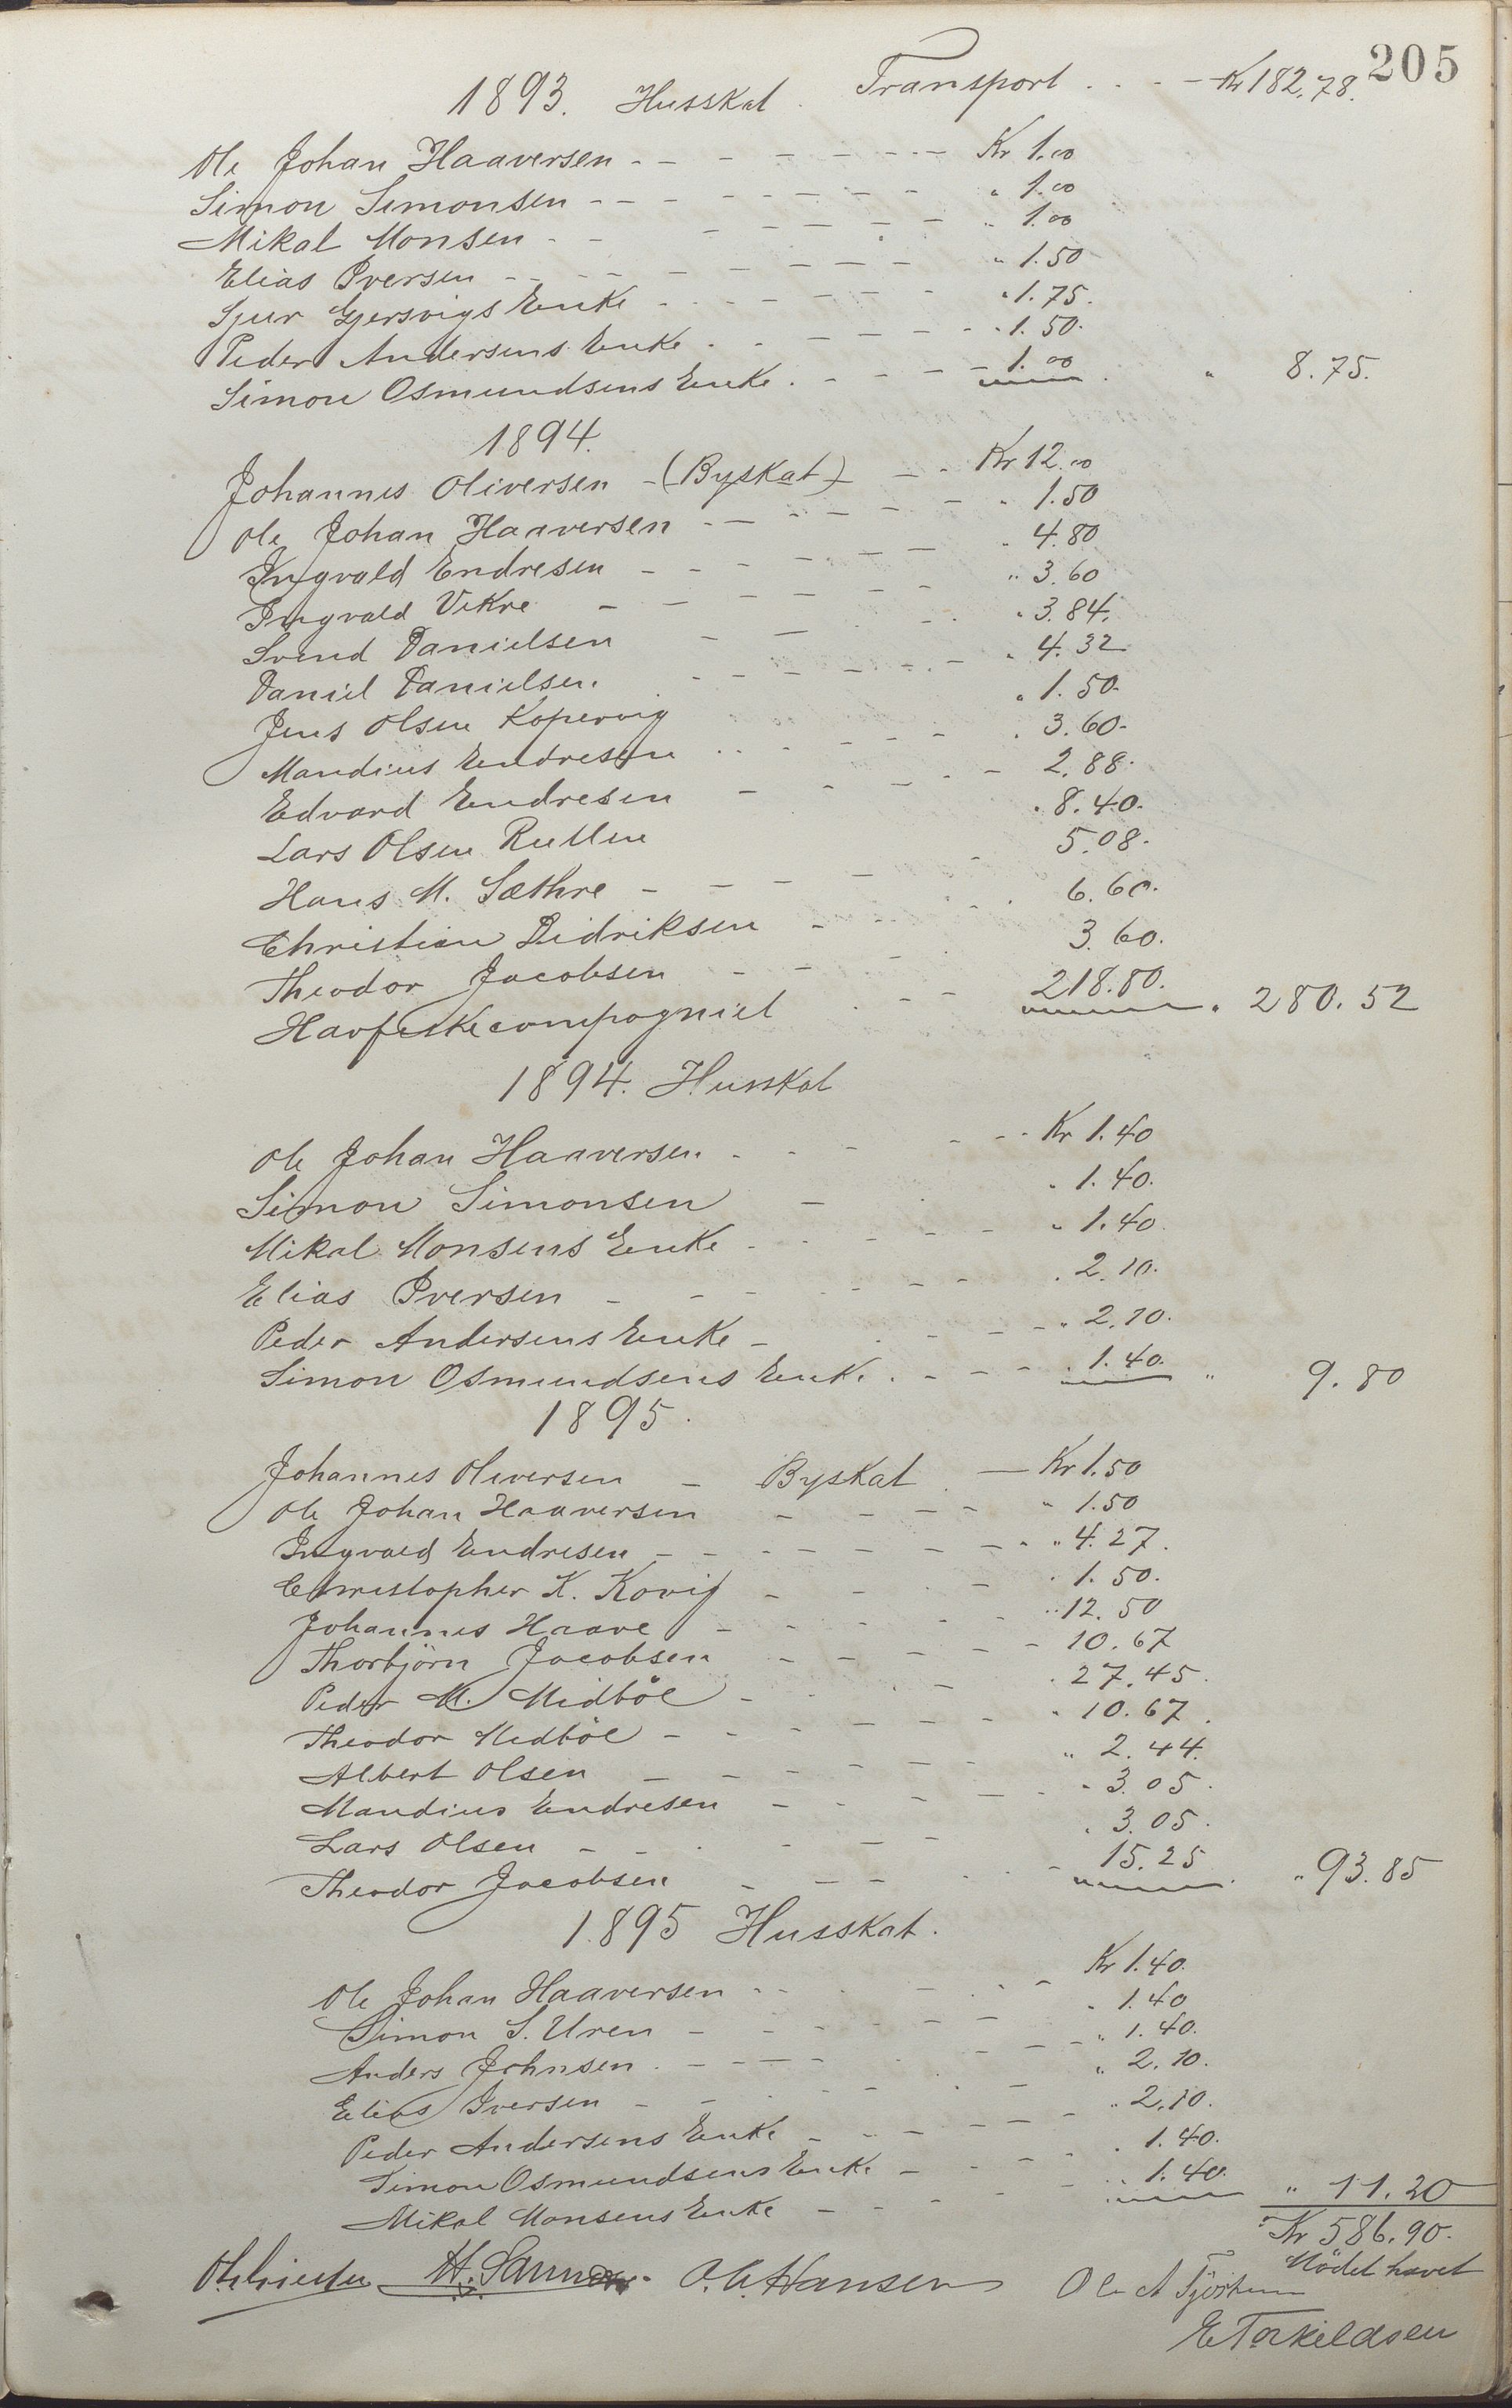 205
1893. Husskat. Transport . . . — Kr 182.78.
Ole Johan Haaversen - - - - - - - Kr 1.00
Simon Simonsen - - - - - - - " 1.00
Mikal Monsen - - - - - - - " 1.00
Elias Iversen - - - - - - - " 1.50
Sjur Gjersvigs Enke - - - - - - " 1.75.
Peder Andersens Enke - - - - - " 1.50.
Simon Osmundsens Enke. - - - - 1.00 " 8.75.
1894.
Johannes Oliversen - (Byskat) - - Kr 12.00
Ole Johan Haaversen - - - - - - " 1.50
Ingvald Endresen - - - - - - " 4.80
Ingvald Vikre - - - - - - " 3.60
Svend Danielsen - - - - " 3.84.
Daniel Danielsen - - - - - " 4.32
Jens Olsen Kopervig " 1.50.
Mandius Endresen - - - - - " 3.60.
Edvard Endresen - - - - - 2.88.
Lars Olsen " 8.40.
Hans M. Sæthre - - - - - 5.08.
Christian Didriksen - - - 6.60.
Theodor Jacobsen - - - 3.60.
Havfiskecompagniet - - - 218.80. " 280.52
1894. Husskat
Ole Johan Haaversen - - - - - Kr 1.40
Simon Simonsen - - " 1.40.
Mikal Monsens Enke - - - - - " 1.40.
Elias Iversen - - - - - - " 2.10.
Peder Andersens Enke - - - - " 2.10.
Simon Osmundsens Enke. - - - - " 1.40. " 9.80
1895.
Johannes Oliversen - Byskat - Kr 1.50
Ole Johan Haaversen - - - - - " 1.50
Ingvald Endresen - - - - - - - " 4.27.
Christopher K. - - - - " 1.50.
Johannes Haave - - - - - " 12.50
Thorbjörn Jacobsen - - - - - - 10.67
Peder M. Midböe - - - - " 27.45.
Theodor Midböe - - - - - - " 10.67.
Albert Olsen - - - - - - " 2.44.
Mandius Endresen - - - - - " 3.05.
Lars Olsen - - - - - - " 3.05.
Theodor Jacobsen - - - - - 15.25 " 93.85
1895 Husskat.
Ole Johan Haaversen - - - - - Kr 1.40.
Simon S. Uren - - - - - - " 1.40
Anders Johnsen - - - - - - " 1.40.
Elias Iversen - - - - - - " 2.10.
Peder Andersens Enke - - - - - - " 2.10.
Simon Osmundsens Enke - - - - " 1.40.
Mikal Monsens Enke - - - - - " 1.40. " 11.20
Kr 586.90.
Mödet hævet
O. C. Hansen Ole A
E Torkildsen